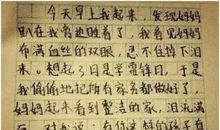 今天早上我起来，发现妈妈
趴在我旁边睡着了，我看见妈妈
布满血丝的双眼，忍不住掉下
来。想起了日是学雷锋日，于是
我偷偷地把所有家务都做好了，
妈妈起来看到整洁的家，泪流满
对我说：有你这样的孩子